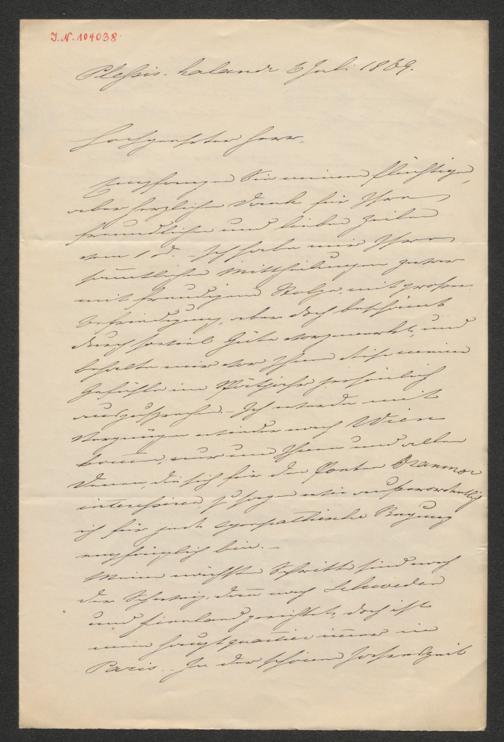 J.N. 104038
Plessis-Lalande 3 Juli 1869.
Hochgeehrter Herr,
Empfangen Sie meinen flüchtigen,
aber herzlichen Dank für Ihre
freundlichen und lieben Zeilen
vom 1 d. – Ich habe mir Ihre
sämmtlichen Mittheilungen zwar
mit freudigem Stolze, mit großer
Befriedigung, aber doch beschämt
durch soviel Güte angemerkt, und
behalte mir vor Ihnen diese meine
Gefühle im Spätjahr persönlich
auszusprechen. Ich werde mit
Vergnügen wieder nach Wien
kommen, nur um Ihnen und allen
Denen, die sich für den Poeten Dranmor
interessiren zu sagen wie außerordentlich
ich für jede sympathische Regung
empfänglich bin. –
Meine nächsten Schritte sind nach
der Schweiz, dann nach Schweden
und Finnland gerichtet, doch ist
mein Hauptquartier immer in
Paris. In der schönen Jahreszeit